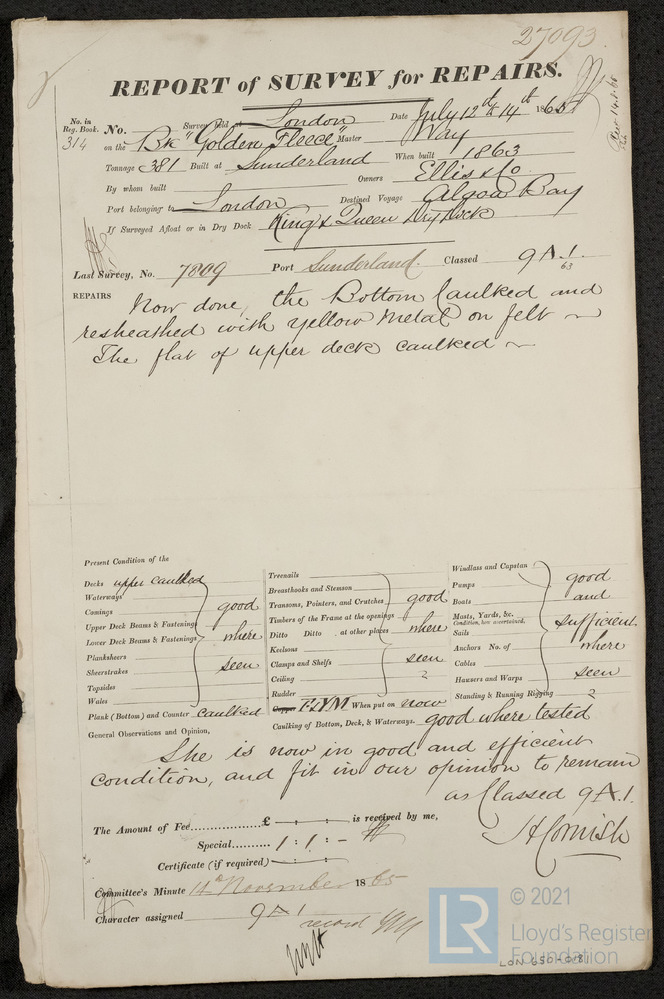 27093
REPORT of SURVEY for REPAIRS.
No. in Reg. Book.
314
No. Survey held at London Date July 12th & 14th 1865
on the Bk "Golden Fleece," Master Way
Tonnage 381 Built at Sunderland When built 1863
By whom built Owners Ellis & Co
Port belonging to London Destined Voyage Algoa Bay
If Surveyed Afloat or in Dry Dock King & Queen Dry Dock
Last Survey, No. 7809 Port Sunderland. Classed 9 A.1. 63
REPAIRS
Now done, the Bottom Caulked and
resheathed with yellow Metal on felt
The flat of upper deck caulked
Present Condition of the
Decks upper caulked
Waterways
Comings
Upper Deck Beams & Fastenings
Lower Deck Beams & Fastenings
Planksheers
Sheerstrakes
Topsides
Wales
good
where
seen
Plank (Bottom) and Counter Caulked
Treenails
Breasthooks and Stemson
Transoms, Pointers, and Crutches
Timbers of the Frame at the openings
Ditto Ditto at other places
Keelsons
Clamps and Shelfs
Ceiling
Rudder
good
where
seen
Copper F&YM When put on now
Caulking of Bottom, Deck, & Waterways. good where tested
Windlass and Capstan
Pumps
Boats
Masts, Yards, &c.
Condition, how ascertained.
Sails
Anchors No. of
Cables
Hausers and Warps
Standing & Running Rigging
good
and
sufficient
where
seen
General Observations and Opinion,
She is now in good and efficient
condition, and fit in our opinion to remain
as Classed 9 A.1.
The Amount of Fee............... £ — : — : — is received by me,
Special......... 1 : 1 : —
J H Cornish
Certificate (if required) — : — : —
Committee's Minute 14th November 1865
Character assigned 9 A 1
record
LR
© 2021
Lloyd's Register
Foundation
LON 650-0181